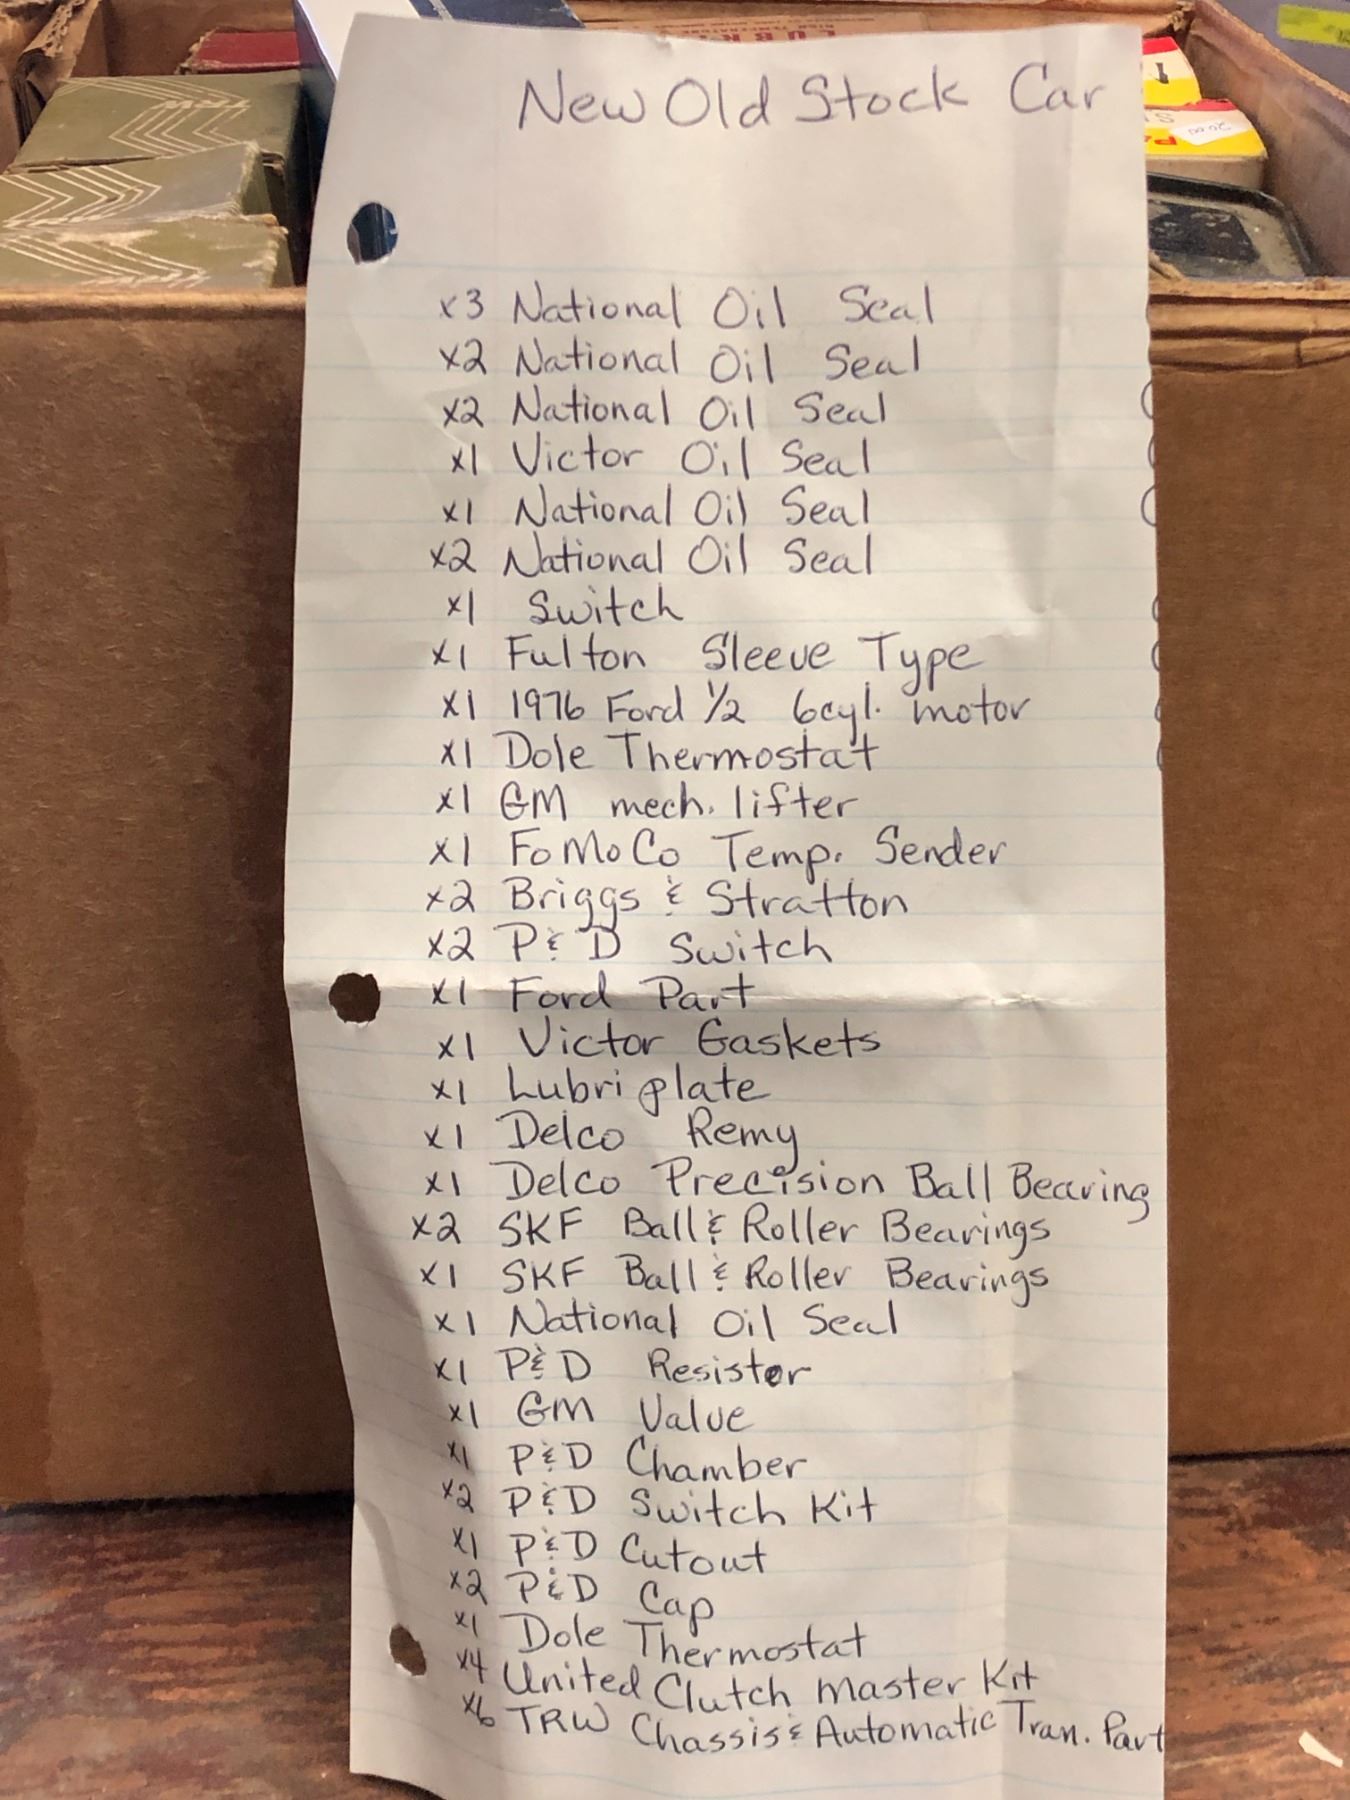 LUBRI
TRW
20.00
New Old Stock Car
x3 National Oil Seal
x2 National Oil Seal
x2 National Oil Seal
x1 Victor Oil Seal
x1 National Oil Seal
x2 National Oil Seal
x1 Switch
x1 Fulton Sleeve Type
x1 1976 Ford 1/2 6cyl. motor
x1 Dole Thermostat
x1 GM mech. lifter
x1 FoMoCo Temp. Sender
x2 Briggs & Stratton
x2 P&D Switch
x1 Ford Part
x1 Victor Gaskets
x1 Lubriplate
x1 Delco Remy
x1 Delco Precision Ball Bearing
x2 SKF Ball & Roller Bearings
x1 SKF Ball & Roller Bearings
x1 National Oil Seal
x1 P&D Resistor
x1 GM Value
x1 P&D Chamber
x2 P&D Switch Kit
x1 P&D Cutout
x2 P&D Cap
x1 Dole Thermostat
x4 United Clutch Master Kit
x6 TRW Chassis & Automatic Tran. Part